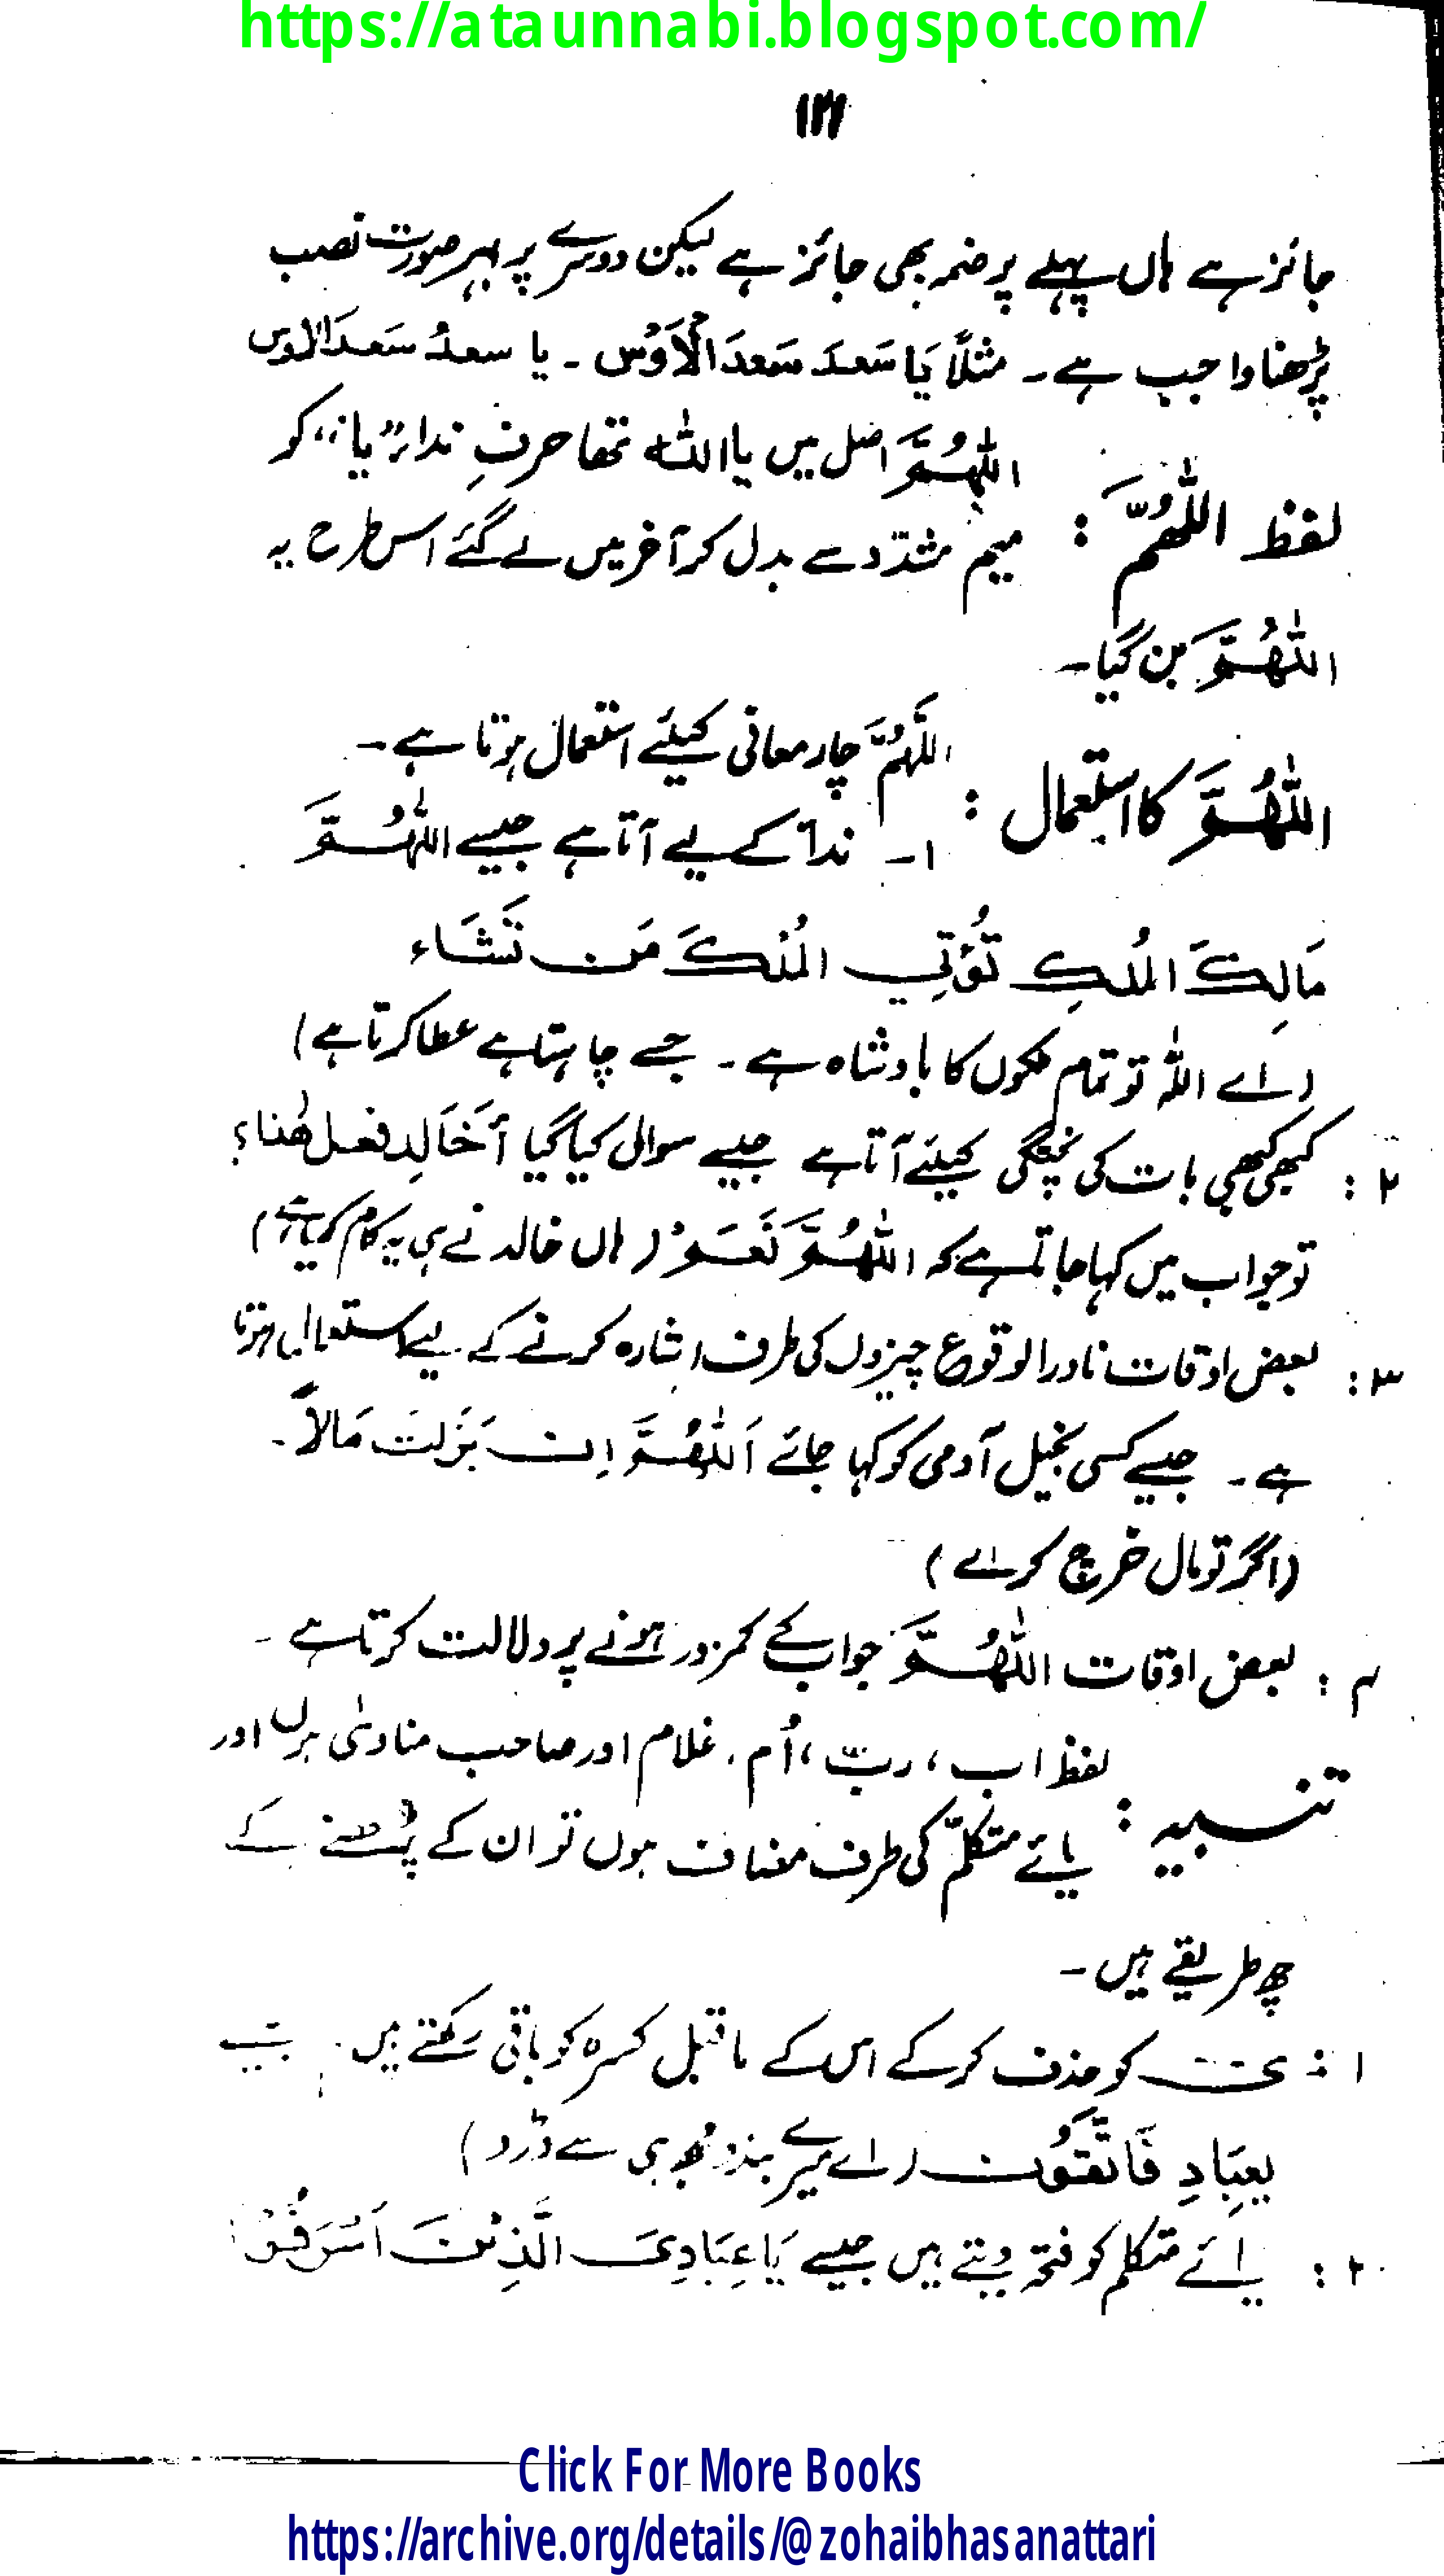 https://ataunnabi.blogspot.com/
۱۲۱
جائز ہے ہاں پہلے پر ضمہ بھی جائز ہے لیکن دوسرے پر بہر صورت نصب
پڑھنا واجب ہے۔ مثلاً یَا سَعدَ سَعدَ الْاَوْس ۔ یا سعدُ سَعدَ الاوس
لفظ اللّٰھُمَّ : اللّٰہُمَّ اصل میں یا اللّٰہ تھا حرفِ ندا "یا" کو
میم مشدّد سے بدل کر آخر میں لے گئے اس طرح یہ
اللّٰھُمَّ بن گیا۔
اللّٰھُمَّ کا استعمال : اللّٰہُمَّ چار معانی کیلئے استعمال ہوتا ہے۔
۱۔ ندا کے لیے آتا ہے جیسے اللّٰہُمَّ
مَالِکَ المُلکِ تُؤتِی المُلکَ مَن تَشَاء
(اے اللّٰہ تو تمام ملکوں کا بادشاہ ہے۔ جسے چاہتا ہے عطا کرتا ہے)
۲ : کبھی کبھی بات کی پختگی کیلئے آتا ہے جیسے سوال کیا گیا أَخَالِد فعل ھٰذا؟
تو جواب میں کہا جاتا ہے کہ اللّٰھُمَّ نَعَمْ (ہاں خالد نے ہی یہ کام کیا ہے)
۳ : بعض اوقات نادر الوقوع چیزوں کی طرف اشارہ کرنے کے لیے استعمال ہوتا
ہے۔ جیسے کسی بخیل آدمی کو کہا جائے اَللّٰھُمَّ اِن بَذَلتَ مَالاً۔
(اگر تو مال خرچ کرے)
۴ : بعض اوقات اللّٰھُمَّ جواب کے کمزور ہونے پر دلالت کرتا ہے۔
تنبیہ : لفظ اب، ربّ، اُم، غلام اور صاحب منادیٰ ہوں اور
یائے متکلّم کی طرف مضاف ہوں تو ان کے پڑھنے کے
چھ طریقے ہیں۔
۱ : ی کو حذف کر کے اس کے ماقبل کسرہ کو باقی رکھتے ہیں۔ جیسے
یعِبَادِ فَاتَّقُون (اے میرے بندو مجھ ہی سے ڈرو)
۲ : یائے متکلم کو فتحہ دیتے ہیں جیسے یَا عِبَادِیَ الَّذِینَ اَسْرَفُوْا
Click For More Books
https://archive.org/details/@zohaibhasanattari